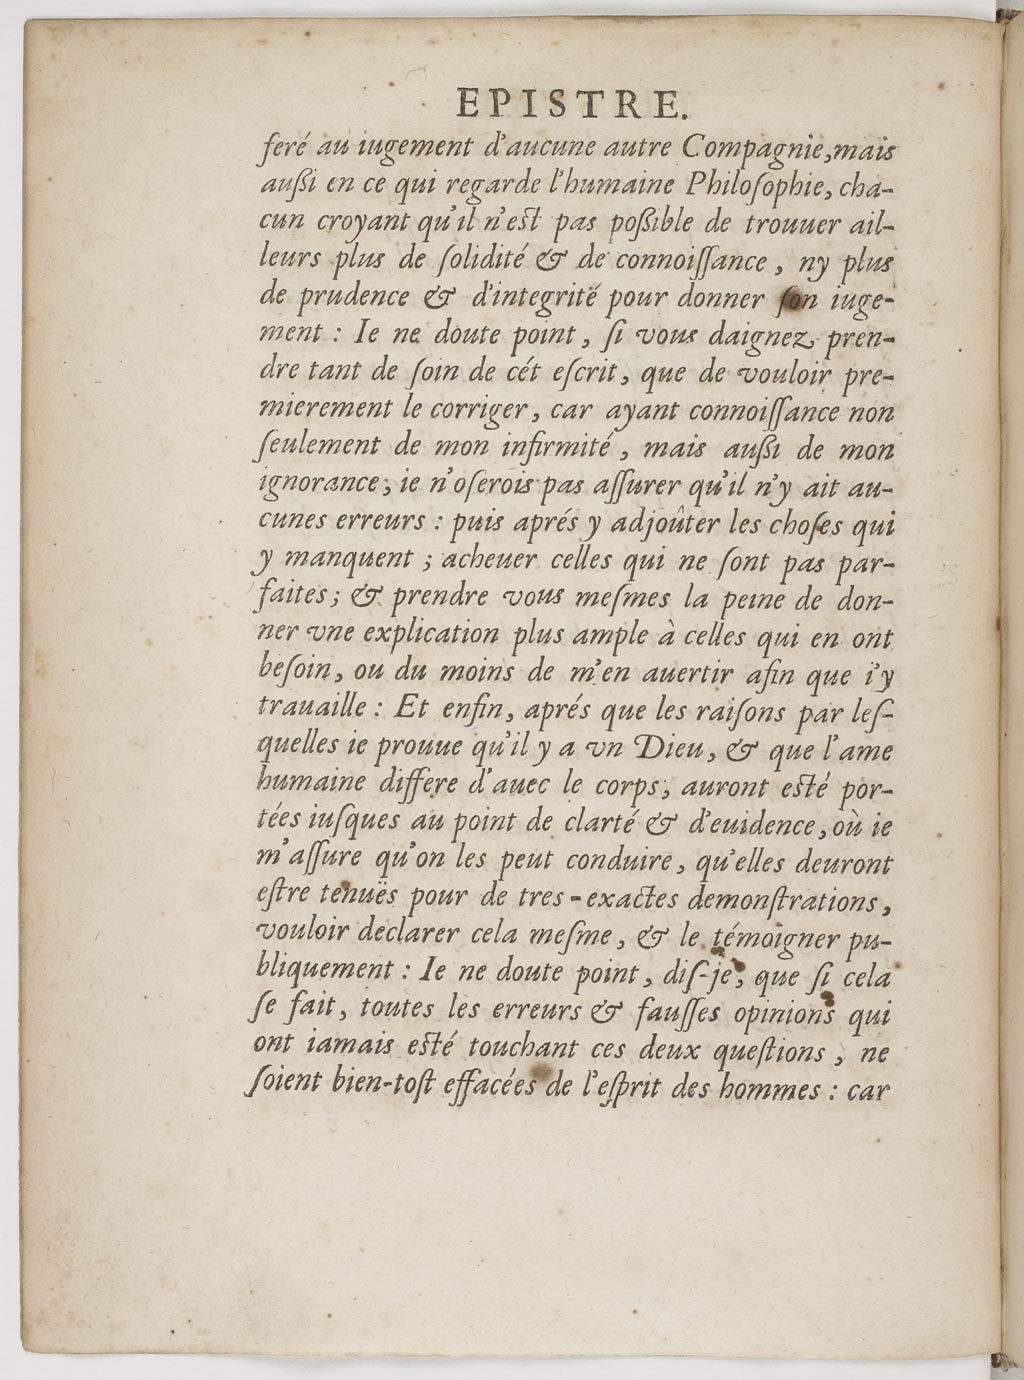 EPISTRE.
feré au iugement d'aucune autre Compagnie, mais
außi en ce qui regarde l'humaine Philoſophie, cha-
cun croyant qu'il n'eſt pas poßible de trouuer ail-
leurs plus de ſolidité & de connoiſſance, ny plus
de prudence & d'integrité pour donner ſon iuge-
ment : Ie ne doute point, ſi vous daignez pren-
dre tant de ſoin de cét eſcrit, que de vouloir pre-
mierement le corriger, car ayant connoiſſance non
ſeulement de mon infirmité, mais außi de mon
ignorance, ie n'oſerois pas aſſurer qu'il n'y ait au-
cunes erreurs : puis aprés y adjoûter les choſes qui
y manquent ; acheuer celles qui ne ſont pas par-
faites ; & prendre vous meſmes la peine de don-
ner vne explication plus ample à celles qui en ont
beſoin, ou du moins de m'en auertir afin que i'y
trauaille : Et enfin, aprés que les raiſons par leſ-
quelles ie prouue qu'il y a vn Dieu, & que l'ame
humaine differe d'auec le corps, auront eſté por-
tées iuſques au point de clarté & d'euidence, où ie
m'aſſure qu'on les peut conduire, qu'elles deuront
eſtre tenuës pour de tres-exactes demonſtrations,
vouloir declarer cela meſme, & le témoigner pu-
bliquement : Ie ne doute point, diſ-je, que ſi cela
ſe fait, toutes les erreurs & fauſſes opinions qui
ont iamais eſté touchant ces deux queſtions, ne
ſoient bien-toſt effacées de l'eſprit des hommes : car